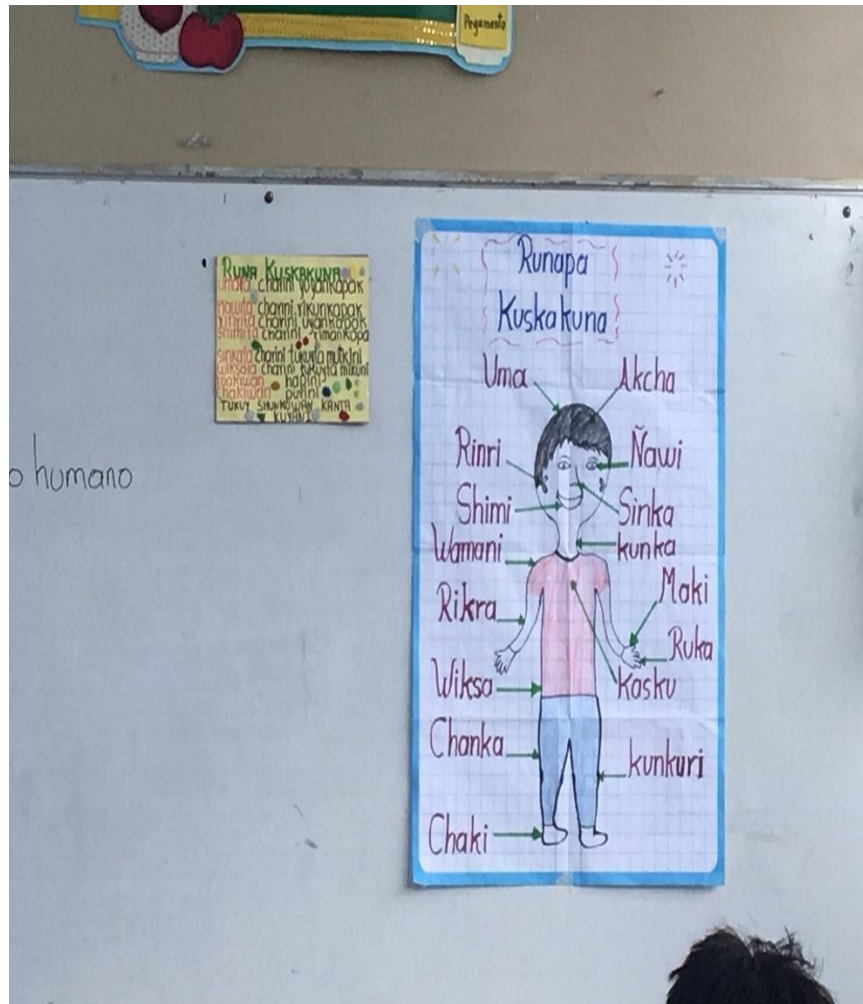 Pegamento
RUNA KUSKAKUNA
umata charini yuyankapak
ñawita charini rikunkapak
rinrita charini uyankapak
shimita charini rimankapa
sinkata charini tukuyta mutkini
wiksata charini tukuyta mikuni
makiwan hapini
chakiwan purini
TUKUY SHUNKUWAN KANTA
KUYANI
o humano
Runapa
Kuskakuna
Uma Akcha
Rinri Ñawi
Shimi Sinka
Wamani kunka
Rikra Maki
Ruka
Wiksa Kasku
Chanka kunkuri
Chaki